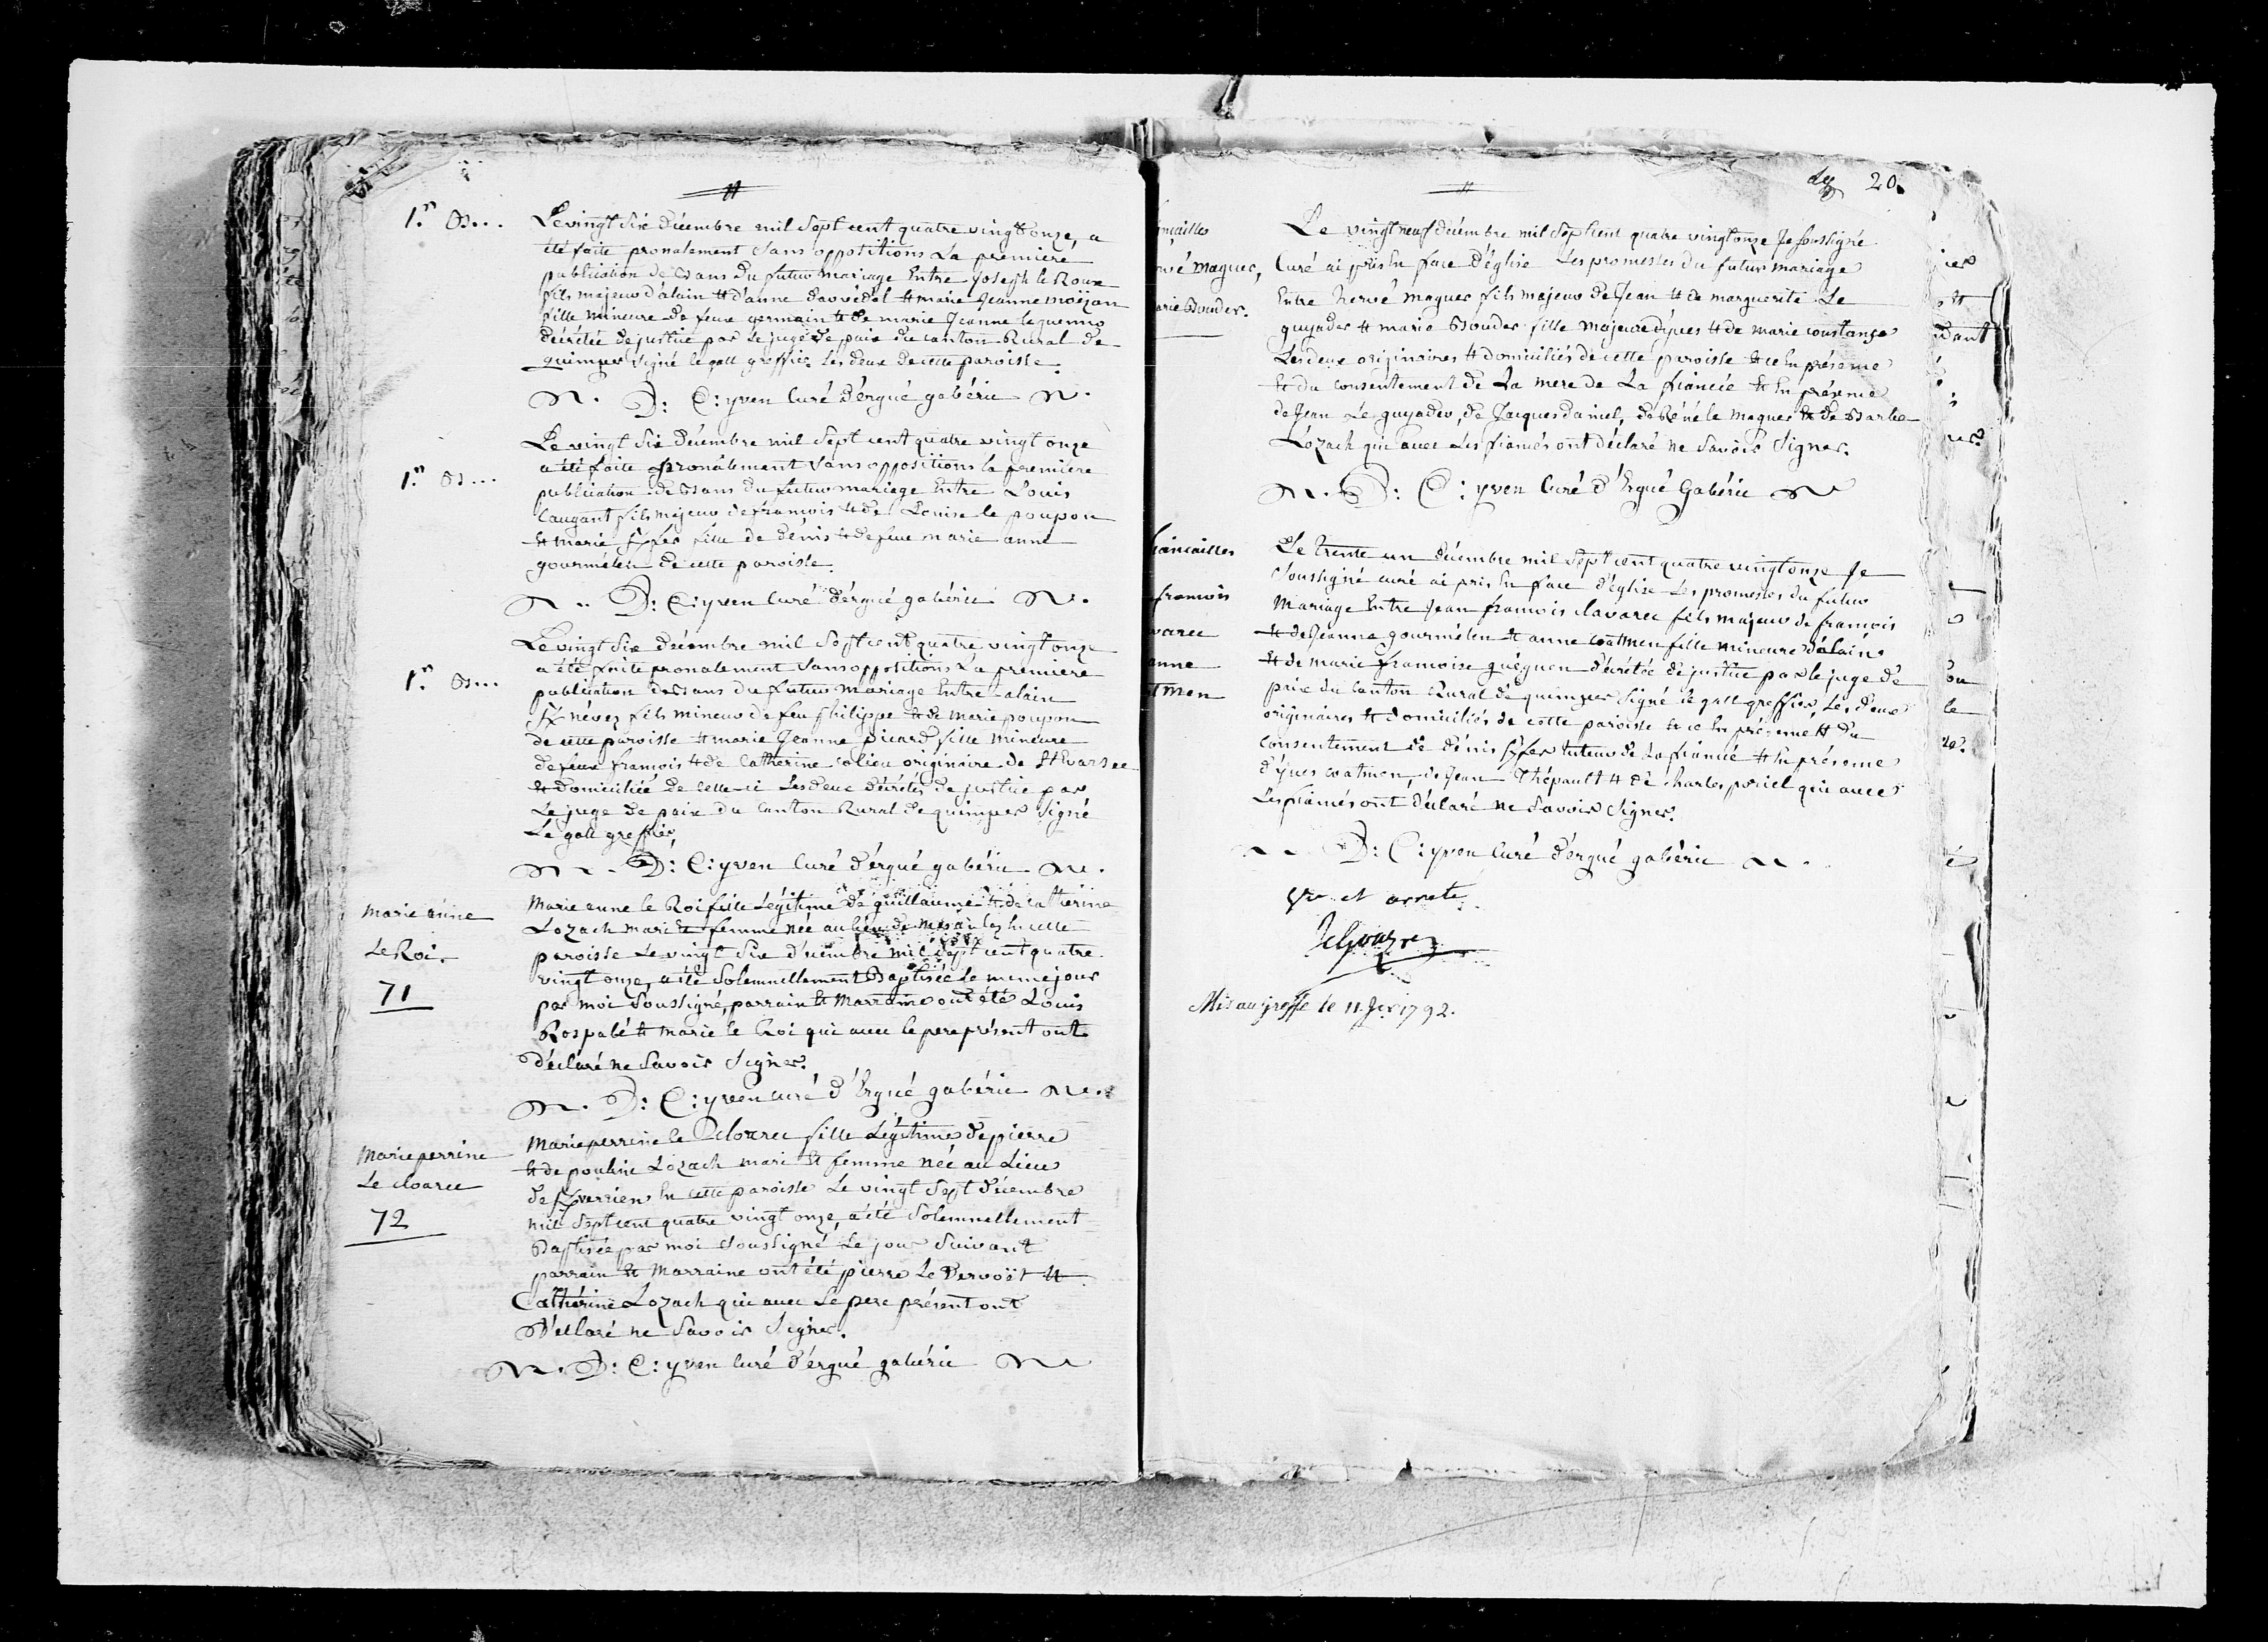 1.r B...
Le vingt Six décembre mil Sept cent quatre vingt onze, a
été faite pronalement Sans oppositions La première
publication de Bans du futur mariage Entre joseph le Roux
fils majeur d'alain et d'anne et marie jeanne moÿzan
fille mineure de feux germain et de marie jeanne
décrétée de justice par Le juge de paix du canton Rural de
quimper signé le gall greffier Les deux de cette paroisse.
D: C: yven Curé d'érgué gabéric
1.r B...
Le vingt Six décembre mil Sept cent quatre vingt onze
a été faite pronalement Sans oppositions la première
publication de Bans du futur mariage Entre Louis
Caugant fils majeur de francois et de Louise le poupon
et marie fille de dénis et de feue marie anne
gourmélen de cette paroisse.
D: C: yven Curé d'érgué gabéric
1.r B...
Le vingt Six décembre mil Sept cent quatre vingt onze
a été faite pronalement Sans oppositions La première
publication de Bans du futur mariage Entre alain
névez fils mineur de feu philippe et de marie poupon
de cette paroisse et marie jeanne picard fille mineure
de feux francois et de Catherine originaire de St Evarzec
et domiciliée de celle-ci Les deux décrétés de justice par
Le juge de paix du Canton Rural de quimper Signé
Le gall greffier,
D: C: yven Curé d'érgué gabéric
marie anne
Le Roi.
71
marie anne le Roi fille Légitime de guillaume et de Catherine
Lozach mari et femme née au lieu de En cette
paroisse Le vingt Six décembre mil Sept cent quatre
vingt onze, a été Solemnellement Baptisée Le meme jour
par moi Soussigné, parrain et Marraine ont été Louis
Rospabé et marie le Roi qui avec le pere présent ont
déclaré ne Savoir Signer.
D: C: yven curé d'Ergué gabéric
Marie perrine
Le cloarec
72
Marie perrine le Cloarec fille Légitime de pierre
et de pauline Lozach mari et femme née au Lieu
de En cette paroisse Le vingt Sept décembre
mil Sept cent quatre vingt onze, a été Solemnellement
Baptisée par moi Soussigné Le jour Suivant
parrain et Marraine ont été pierre Le Bervoït et
Cathérine Lozach qui avec Le pere présent ont
Déclaré ne Savoir Signer.
D: C: yven Curé d'érgué gabéric
20.
ncailles
rvé maguer,
arie Bouder.
Le vingt neuf décembre mil Sept cent quatre vingt onze Je soussigné
Curé ai pris En face d'église Les promesses du futur mariage
Entre hervé maguer fils majeur de Jean et de marguerite Le
guyader et marie Bouder fille majeure d'yves et de marie constance
Les deux originaires et domiciliés de cette paroisse et ce En présence
et du consentement de La mere de La fiancée et En présence
de Jean Le guyader, de Jacques daniel, de Réné le maguer et de Barbe
Lozach qui avec Les fiancés ont déclaré ne Savoir Signer.
D: C: yven Curé d'Ergué Gabéric
fiancailles
francois
varec
anne
tmen
Le trente un décembre mil Sept cent quatre vingt onze Je
Soussigné curé ai pris En face d'église Les promesses du futur
Mariage Entre Jean francois clavarec fils majeur de francois
et de Jeanne gourmélen et anne coatmen fille mineure d'alain
et de marie francoise guéguen décrétée de justice par le juge de
paix du Canton Rural de quimper Signé le gall greffier, Les deux
originaires et domiciliés de cette paroisse et ce En présence et du
Consentement de dénis tuteur de La fiancée et En présence
d'yves coatmen, de Jean Thépault et de charles poriel qui avec
Les fiancés ont déclaré ne Savoir Signer.
D: C: yven Curé d'érgué gabéric
et arreté
Mis au greffe le 11. Jer 1792.